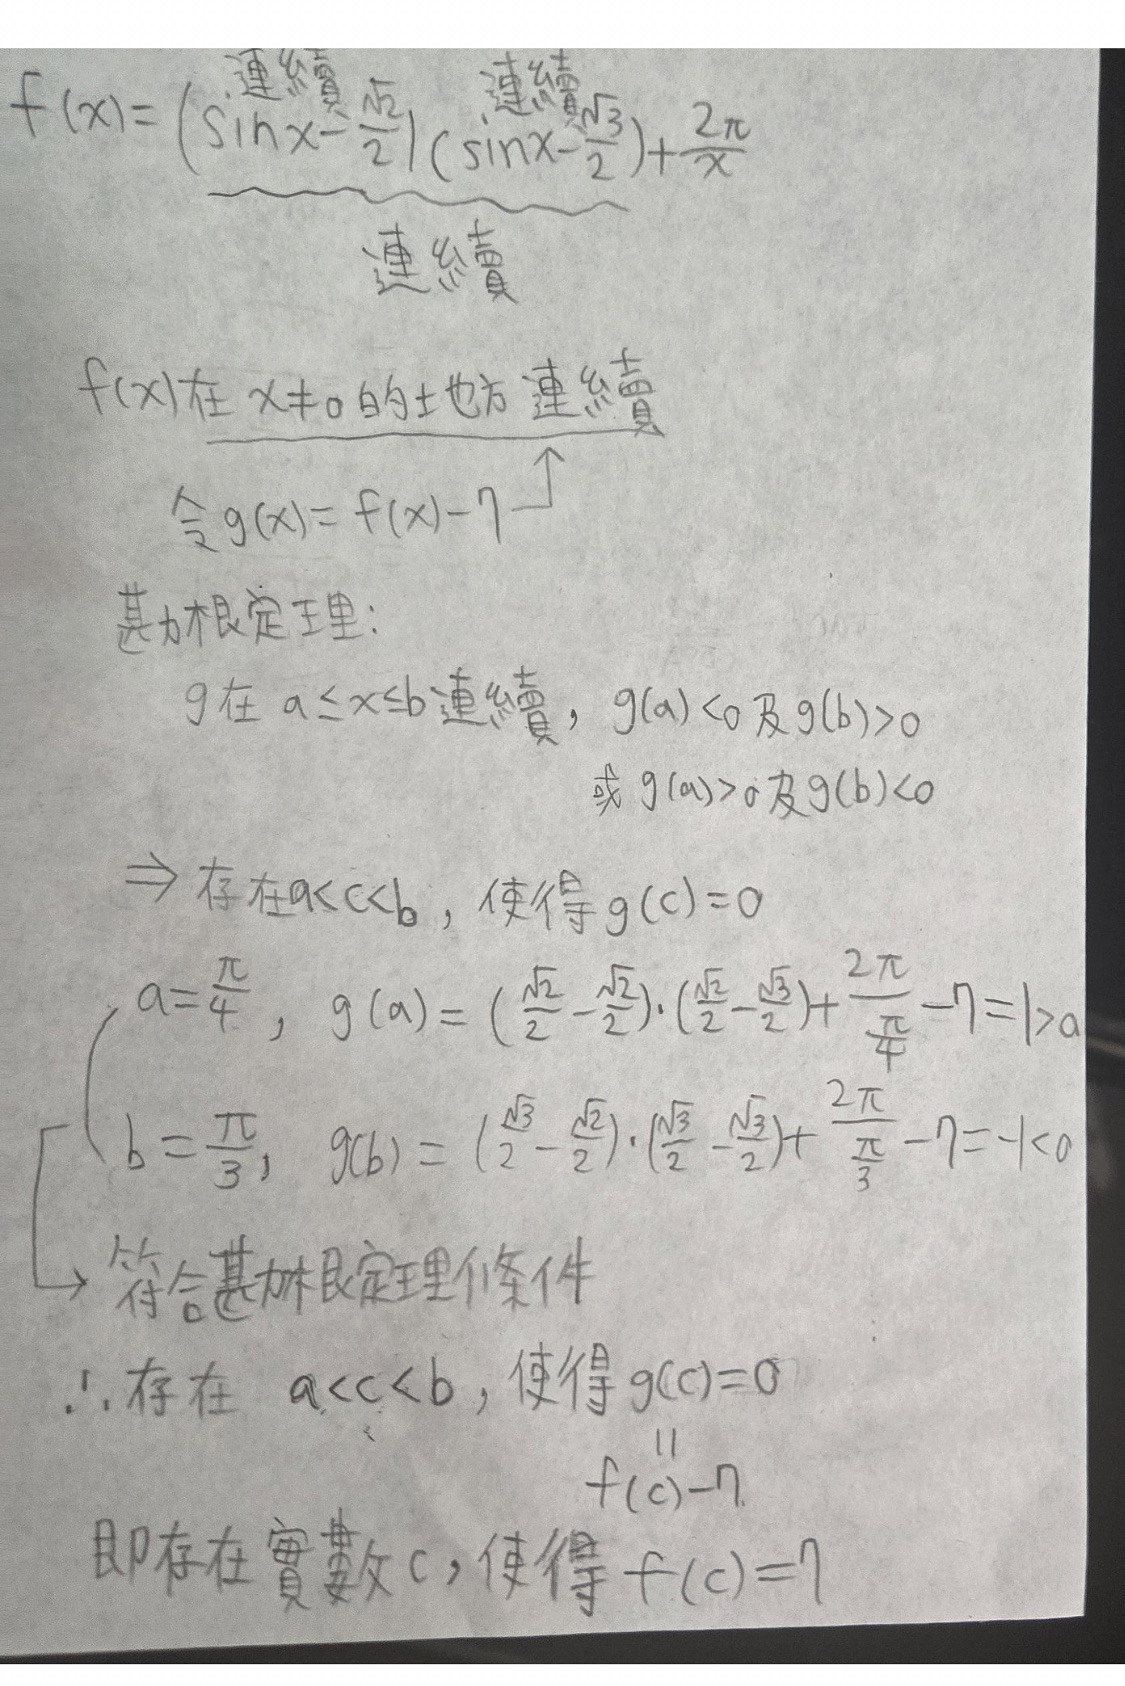 連續 連續
f(x)=(sinx-√2/2)(sinx-√3/2)+2π/x
連續
f(x)在 x≠0 的地方連續
令g(x)=f(x)-7
勘根定理:
g在 a≤x≤b連續, g(a)<0及g(b)>0
或 g(a)>0及g(b)<0
⇒存在a<c<b, 使得g(c)=0
a=π/4, g(a)=(√2/2-√2/2)·(√2/2-√3/2)+2π/(π/4)-7=1>a
b=π/3, g(b)=(√3/2-√2/2)·(√3/2-√3/2)+2π/(π/3)-7=-1<0
符合勘根定理條件
∴存在 a<c<b, 使得g(c)=0
=
f(c)-7
即存在實數c, 使得f(c)=7